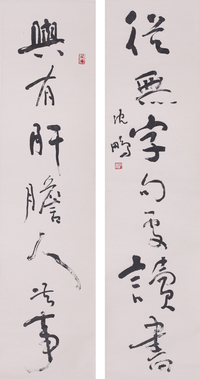 從無字句處讀書
沈鵬
與有肝膽人共事